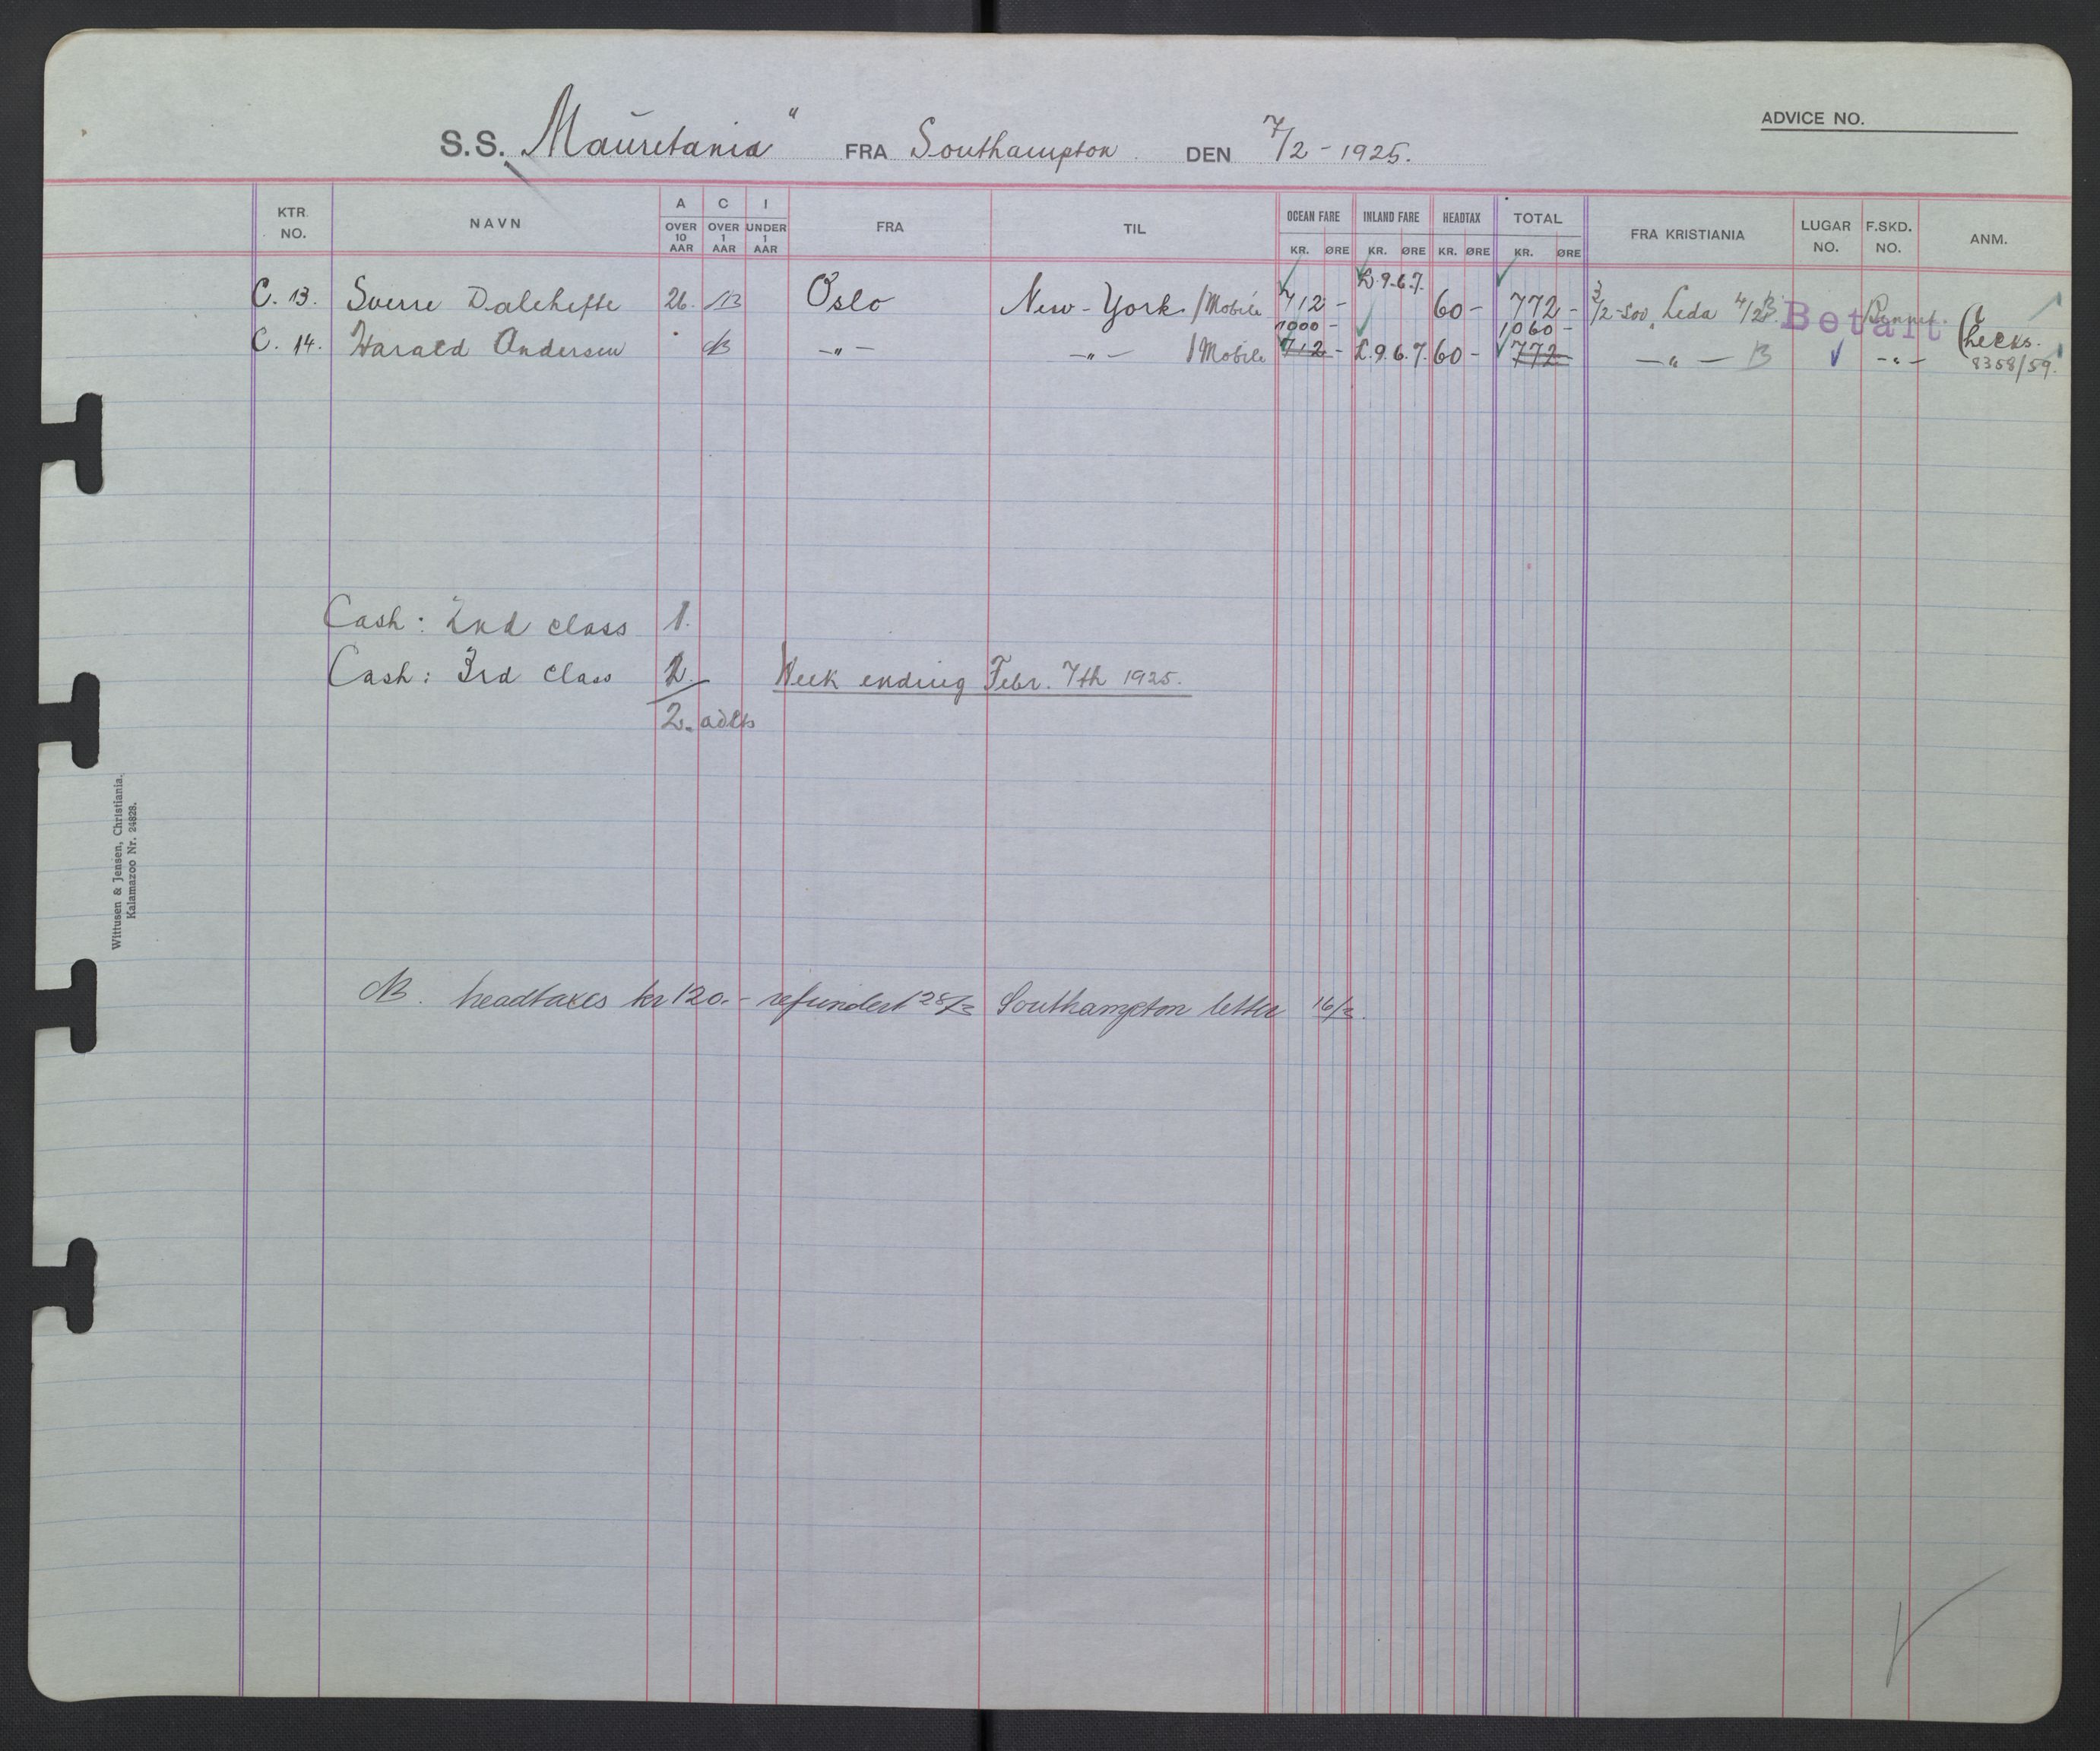 S.S. "Mauretania" FRA Southampton. DEN 7/2 - 1925.
ADVICE NO.
KTR. NO. NAVN A OVER 10 AAR C OVER 1 AAR I UNDER 1 AAR FRA TIL OCEAN FARE KR. ØRE INLAND FARE KR. ØRE HEADTAX KR. ØRE TOTAL KR. ØRE FRA KRISTIANIA LUGAR NO. F.SKD. NO. ANM.
C. 13. Sverre Dalehefte 26. Oslo New-York /Mobile 712 - £.9.6.7. 60 - 772 - Leda 4/2 Betalt Bennet. Checks.
1000 - 1060 -
C. 14. Harald Andersen NB - " - - " - /Mobile 712 - £.9.6.7. 60 - 772 - " - B - " - 8358/59.
Cash: 2nd class 1.
Cash: 3rd class 2. Week ending Febr. 7th 1925.
2. adlts
NB. headtaxes kr 120.- refundert 28/3 Southampton letter 16/3.
Wittusen & Jensen, Christiania.
Kalamazoo Nr. 24828.